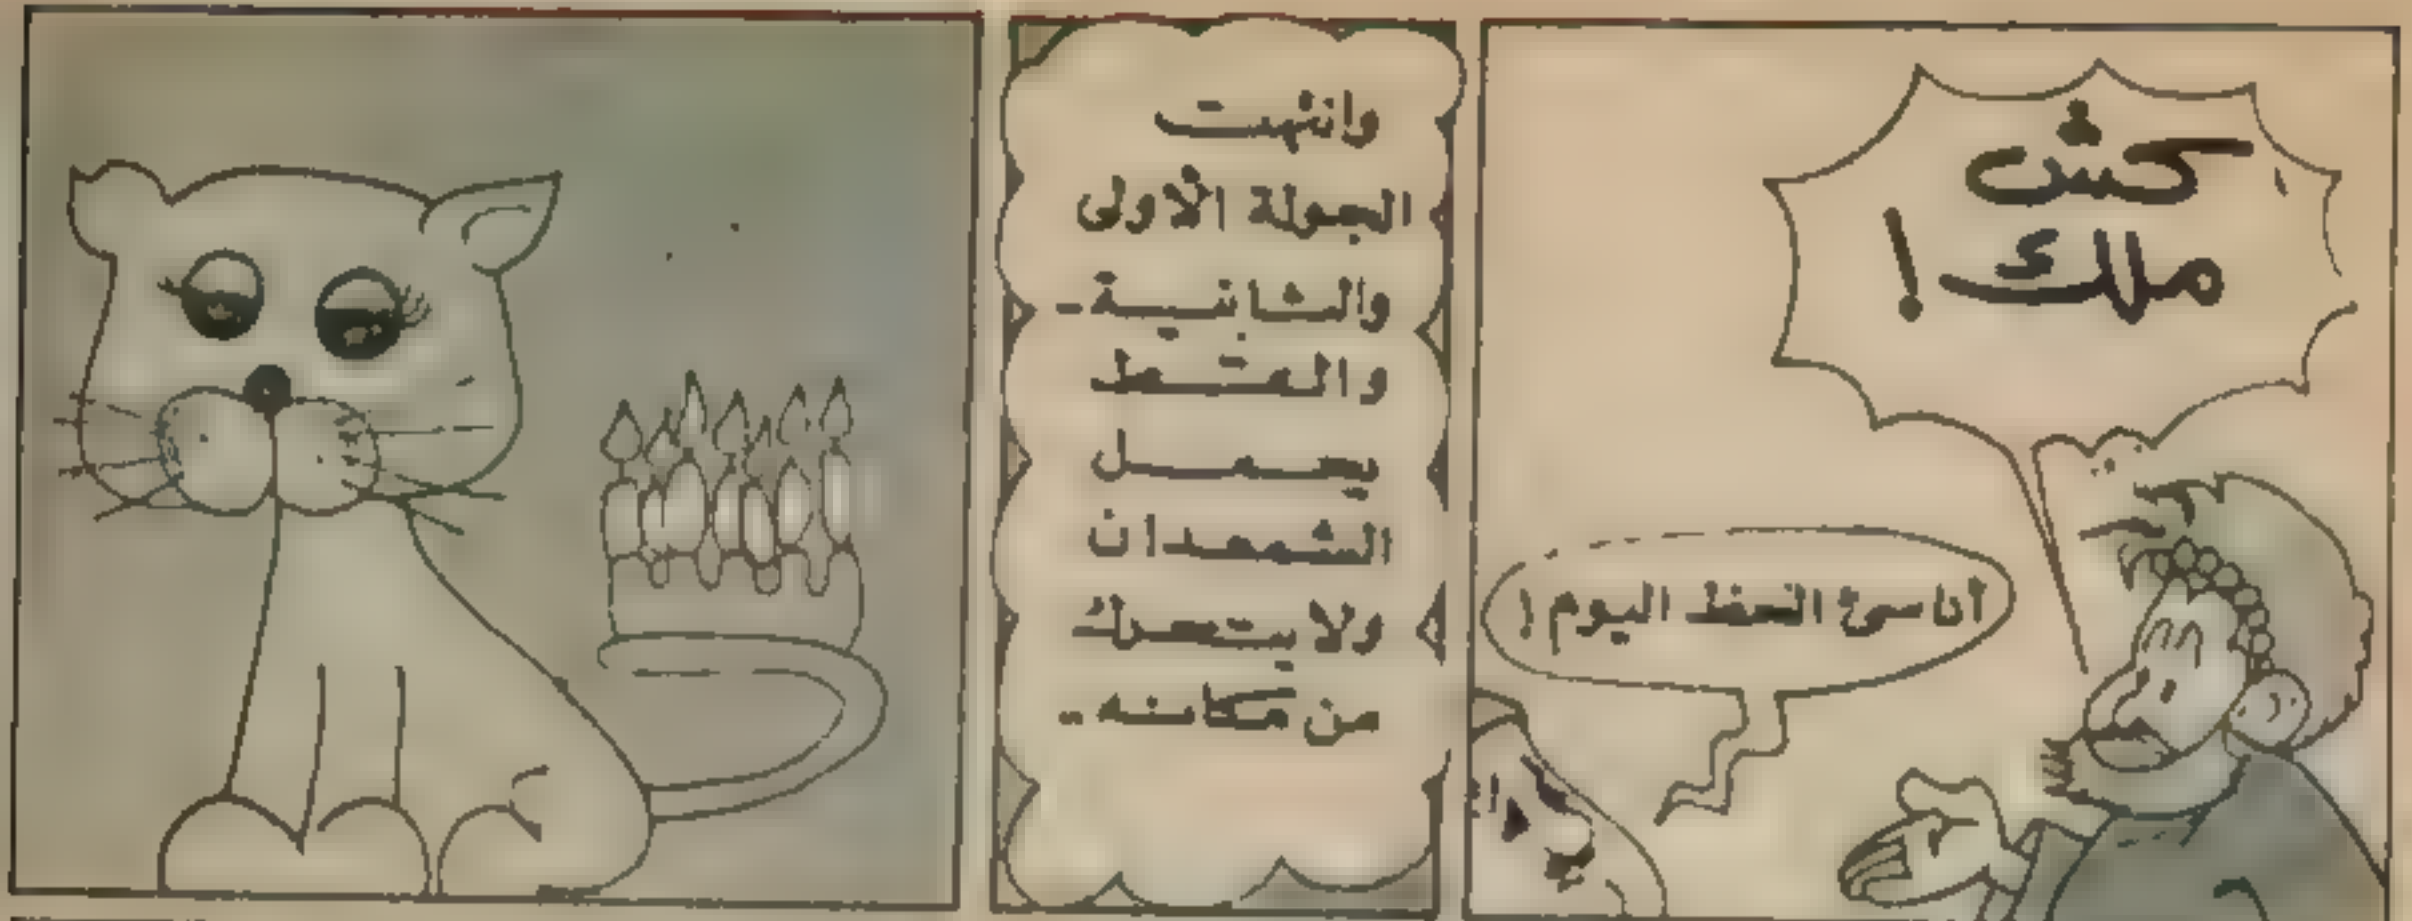 كش
ملك !
أنا سئ الحظ اليوم !
وانتهت
الجولة الأولى
والثانية -
والقط
يحمل
الشمعدان
ولا يتحرك
من مكانه ..